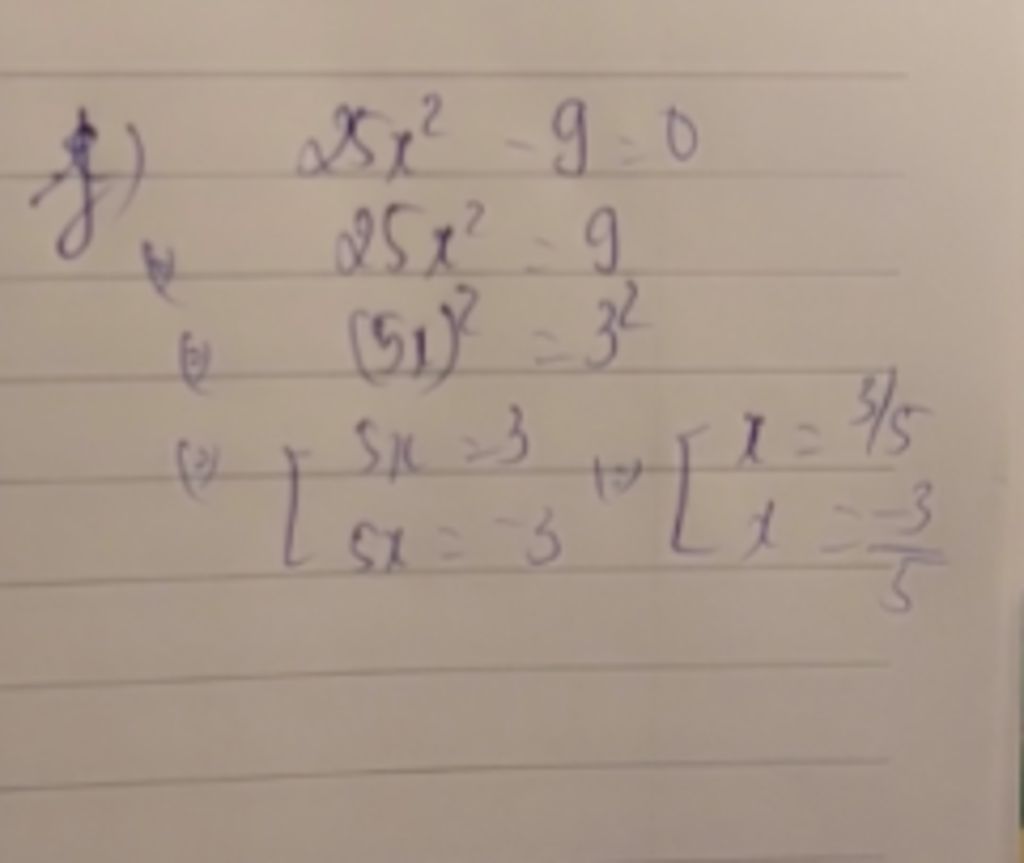 f) 25x² - 9 = 0
(=) 25x² = 9
(=) (5x)² = 3²
(=) [ 5x = 3 (=) [ x = 3/5
5x = -3 x = -3/5